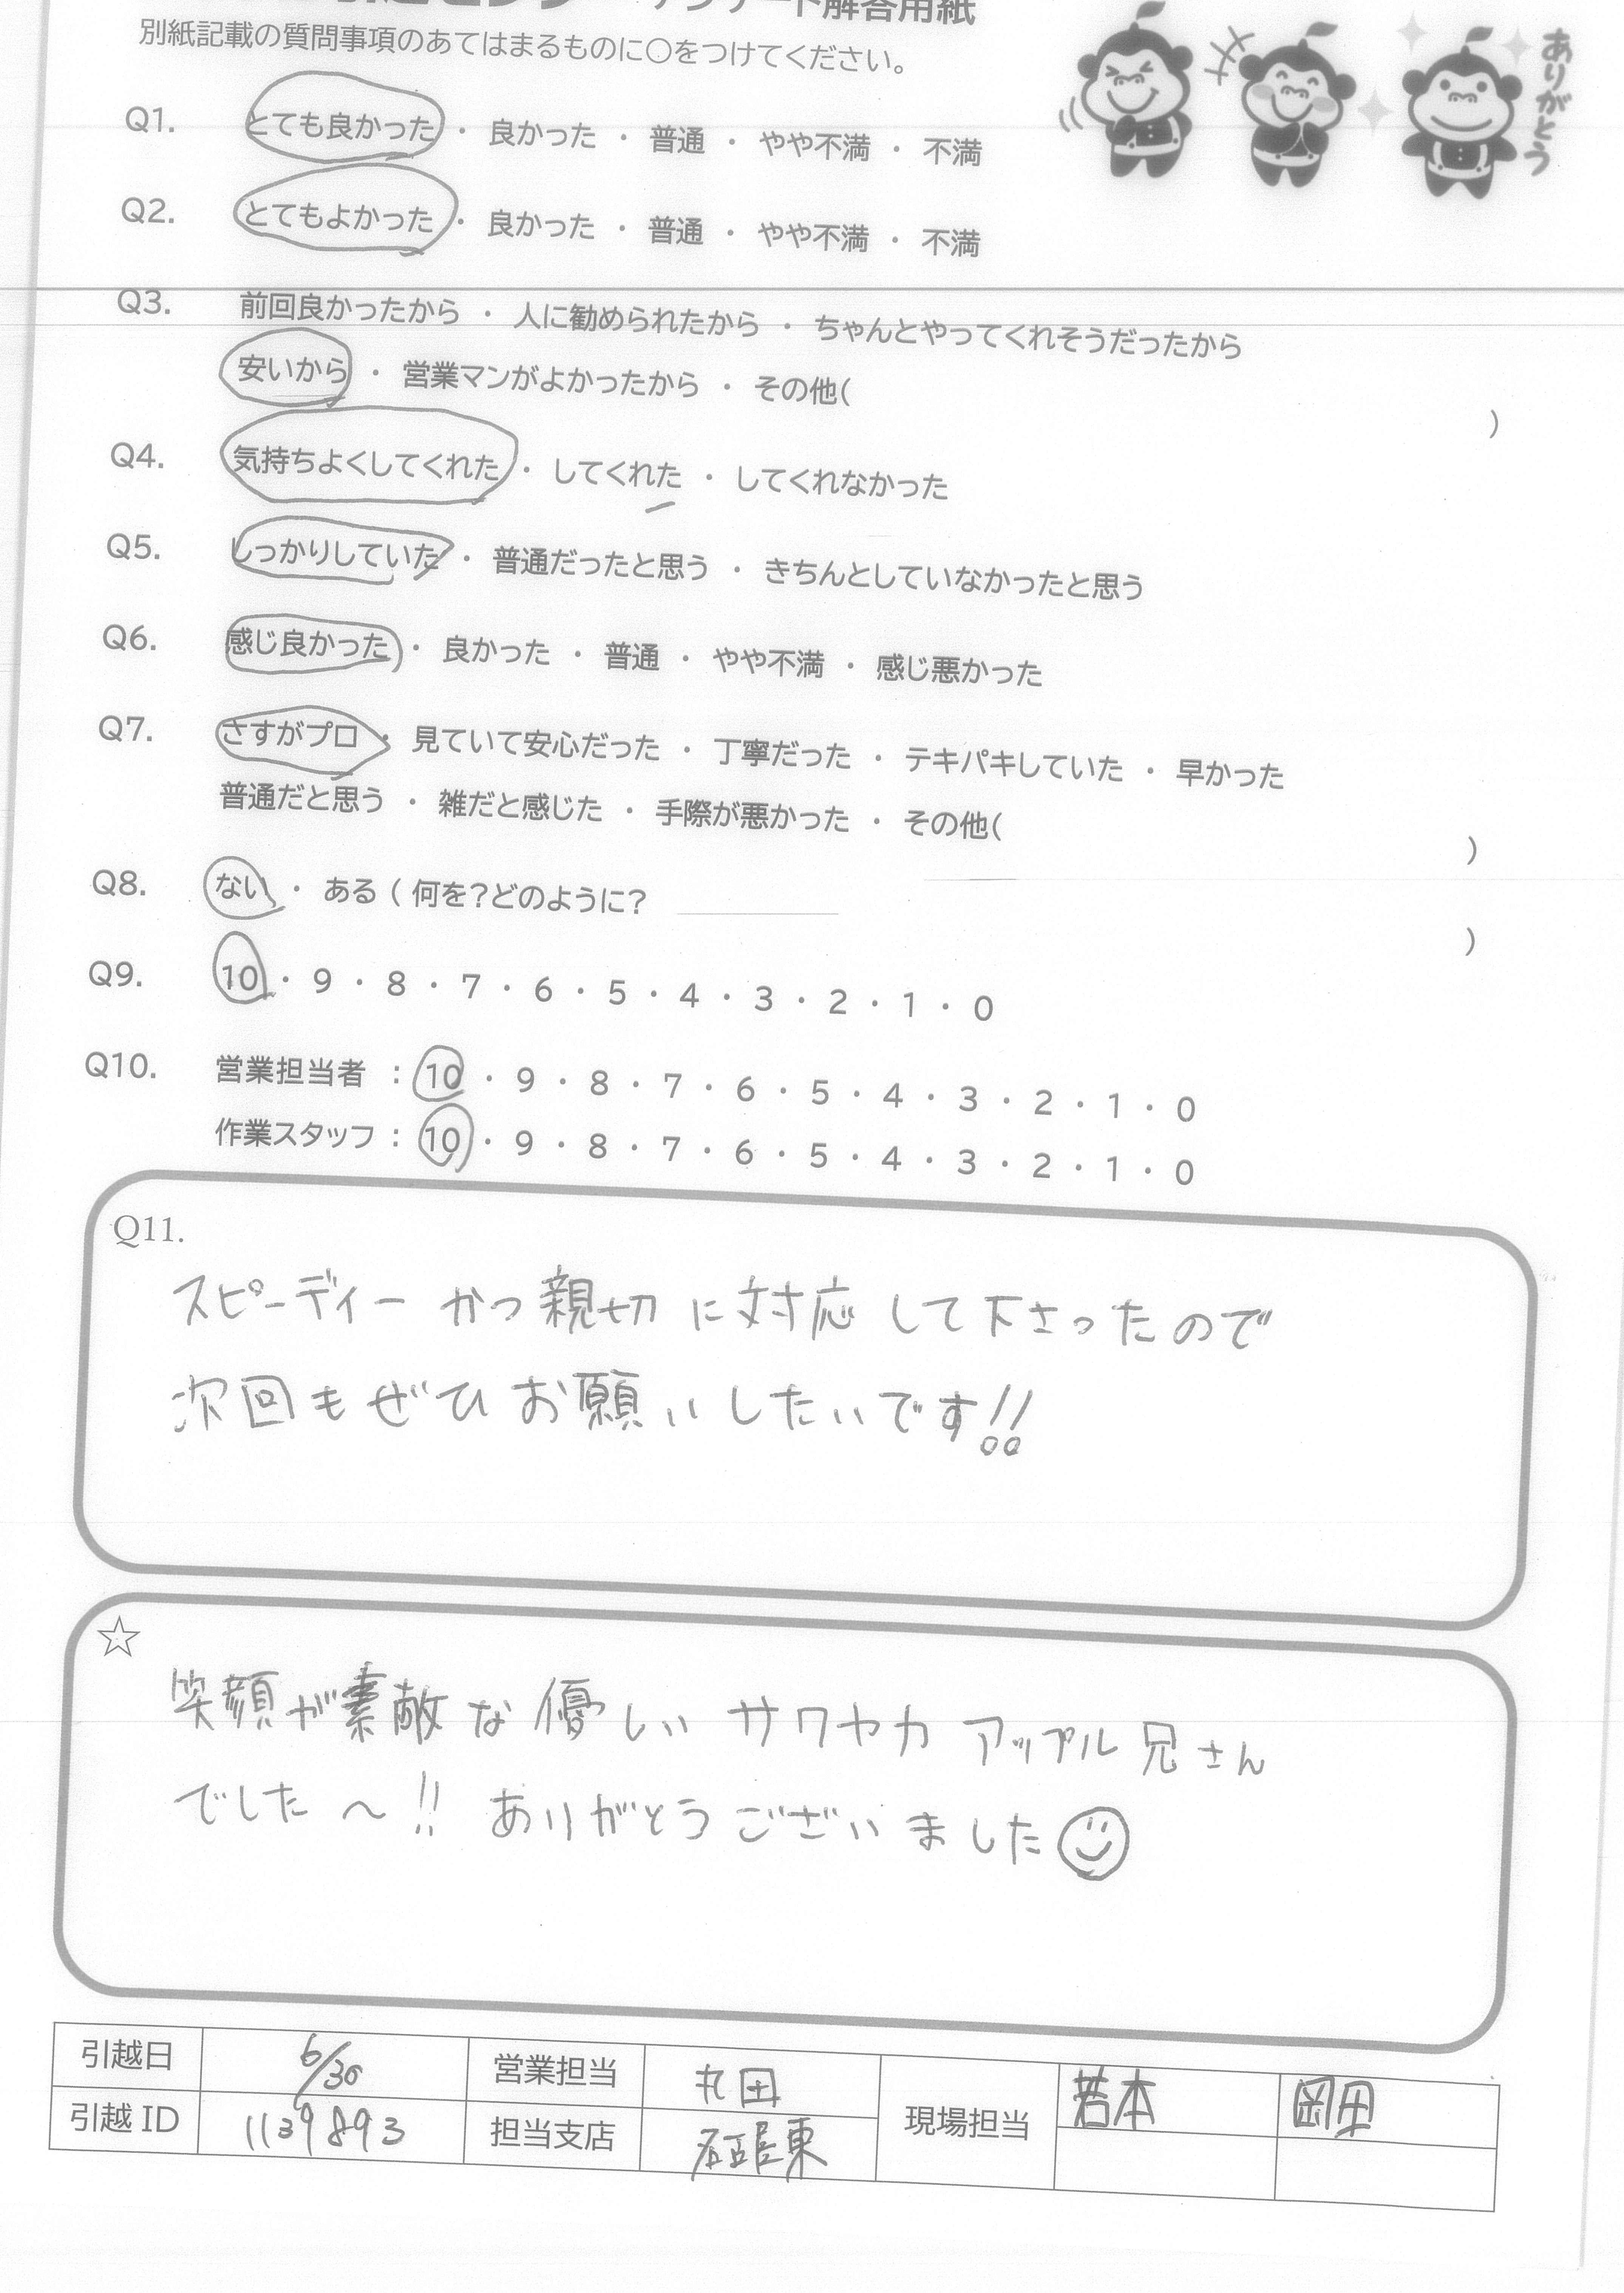 アンケート解答用紙
別紙記載の質問事項のあてはまるものに〇をつけてください。
ありがとう
Q1. とても良かった ・ 良かった ・ 普通 ・ やや不満 ・ 不満
Q2. とてもよかった ・ 良かった ・ 普通 ・ やや不満 ・ 不満
Q3. 前回良かったから ・ 人に勧められたから ・ ちゃんとやってくれそうだったから
安いから ・ 営業マンがよかったから ・ その他( )
Q4. 気持ちよくしてくれた ・ してくれた ・ してくれなかった
Q5. しっかりしていた ・ 普通だったと思う ・ きちんとしていなかったと思う
Q6. 感じ良かった ・ 良かった ・ 普通 ・ やや不満 ・ 感じ悪かった
Q7. さすがプロ ・ 見ていて安心だった ・ 丁寧だった ・ テキパキしていた ・ 早かった
普通だと思う ・ 雑だと感じた ・ 手際が悪かった ・ その他( )
Q8. ない ・ ある ( 何を?どのように? )
Q9. 10 ・ 9 ・ 8 ・ 7 ・ 6 ・ 5 ・ 4 ・ 3 ・ 2 ・ 1 ・ 0
Q10. 営業担当者 : 10 ・ 9 ・ 8 ・ 7 ・ 6 ・ 5 ・ 4 ・ 3 ・ 2 ・ 1 ・ 0
作業スタッフ : 10 ・ 9 ・ 8 ・ 7 ・ 6 ・ 5 ・ 4 ・ 3 ・ 2 ・ 1 ・ 0
Q11.
スピーディー かつ 親切 に 対応 して 下さったので
次回もぜひ お願いしたいです!!
☆
笑顔が素敵な優しい サワヤカ アップル兄さん
でした〜!! ありがとうございました☺
引越日 6/30 営業担当 丸田 現場担当 若本 岡田
引越 ID 1139893 担当支店